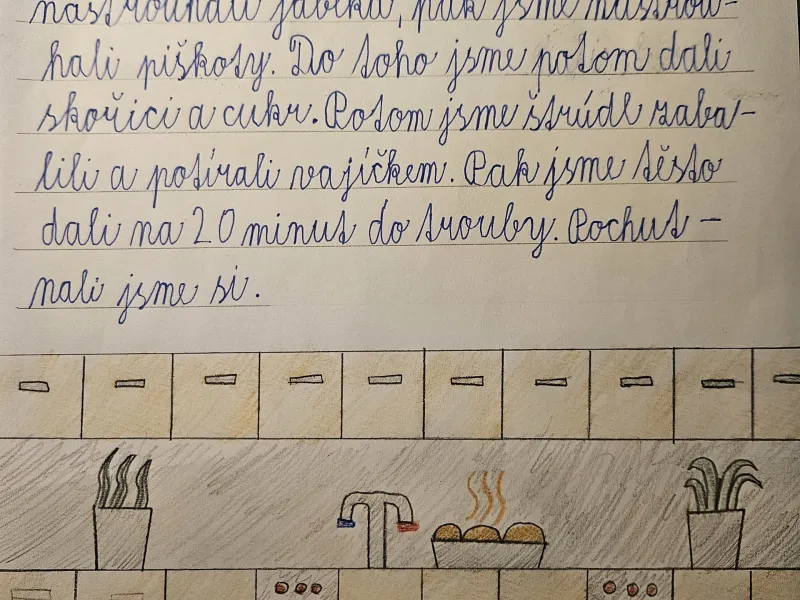 nastrouhali jablka, pak jsme nastrou-
hali piškoty. Do toho jsme potom dali
skořici a cukr. Potom jsme štrúdl zaba-
lili a potírali vajíčkem. Pak jsme těsto
dali na 20 minut do trouby. Pochut-
nali jsme si.